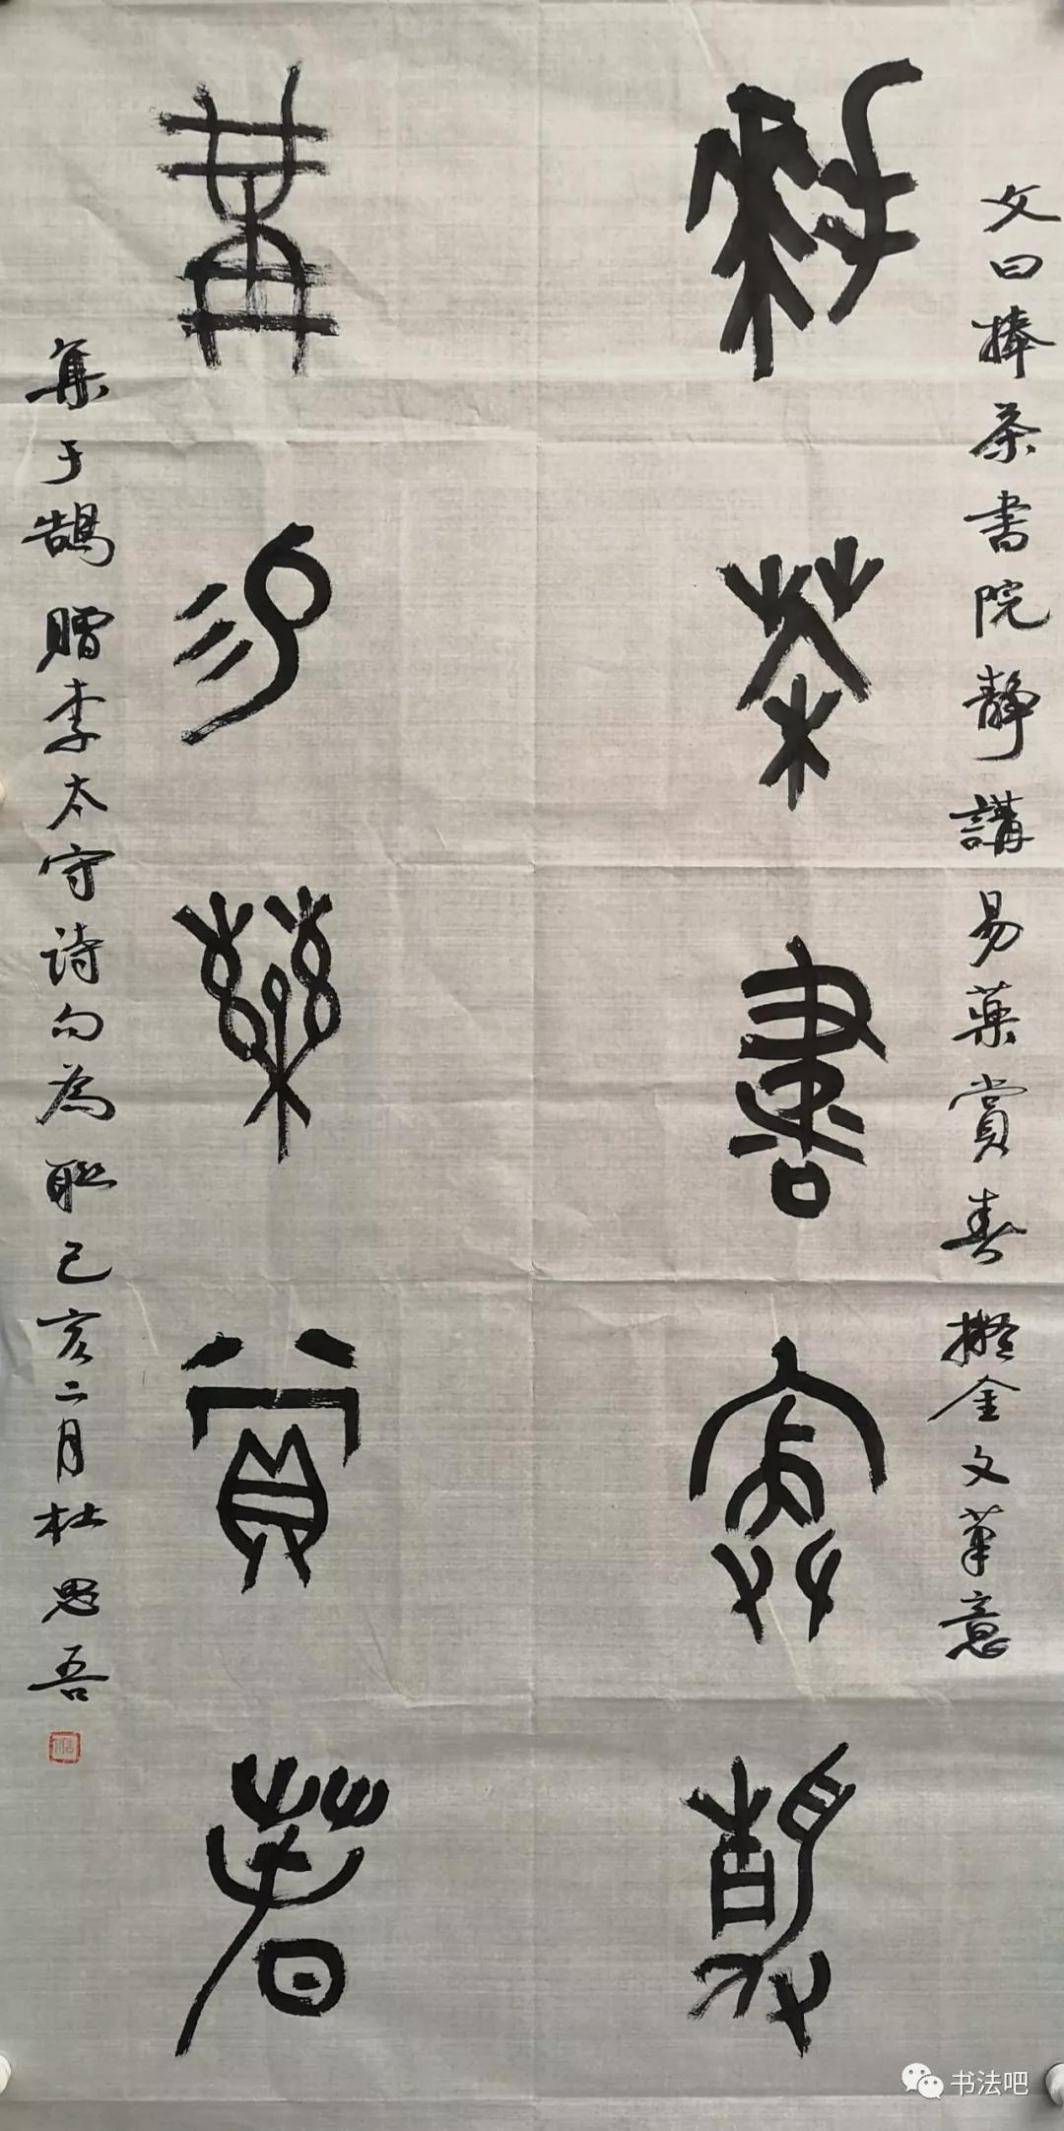 文曰捧茶書院靜講易藥賞春擬金文筆意
捧茶書院靜
講易藥賞春
集于鵠贈李太守詩句為聯己亥二月杜思吾
书法吧